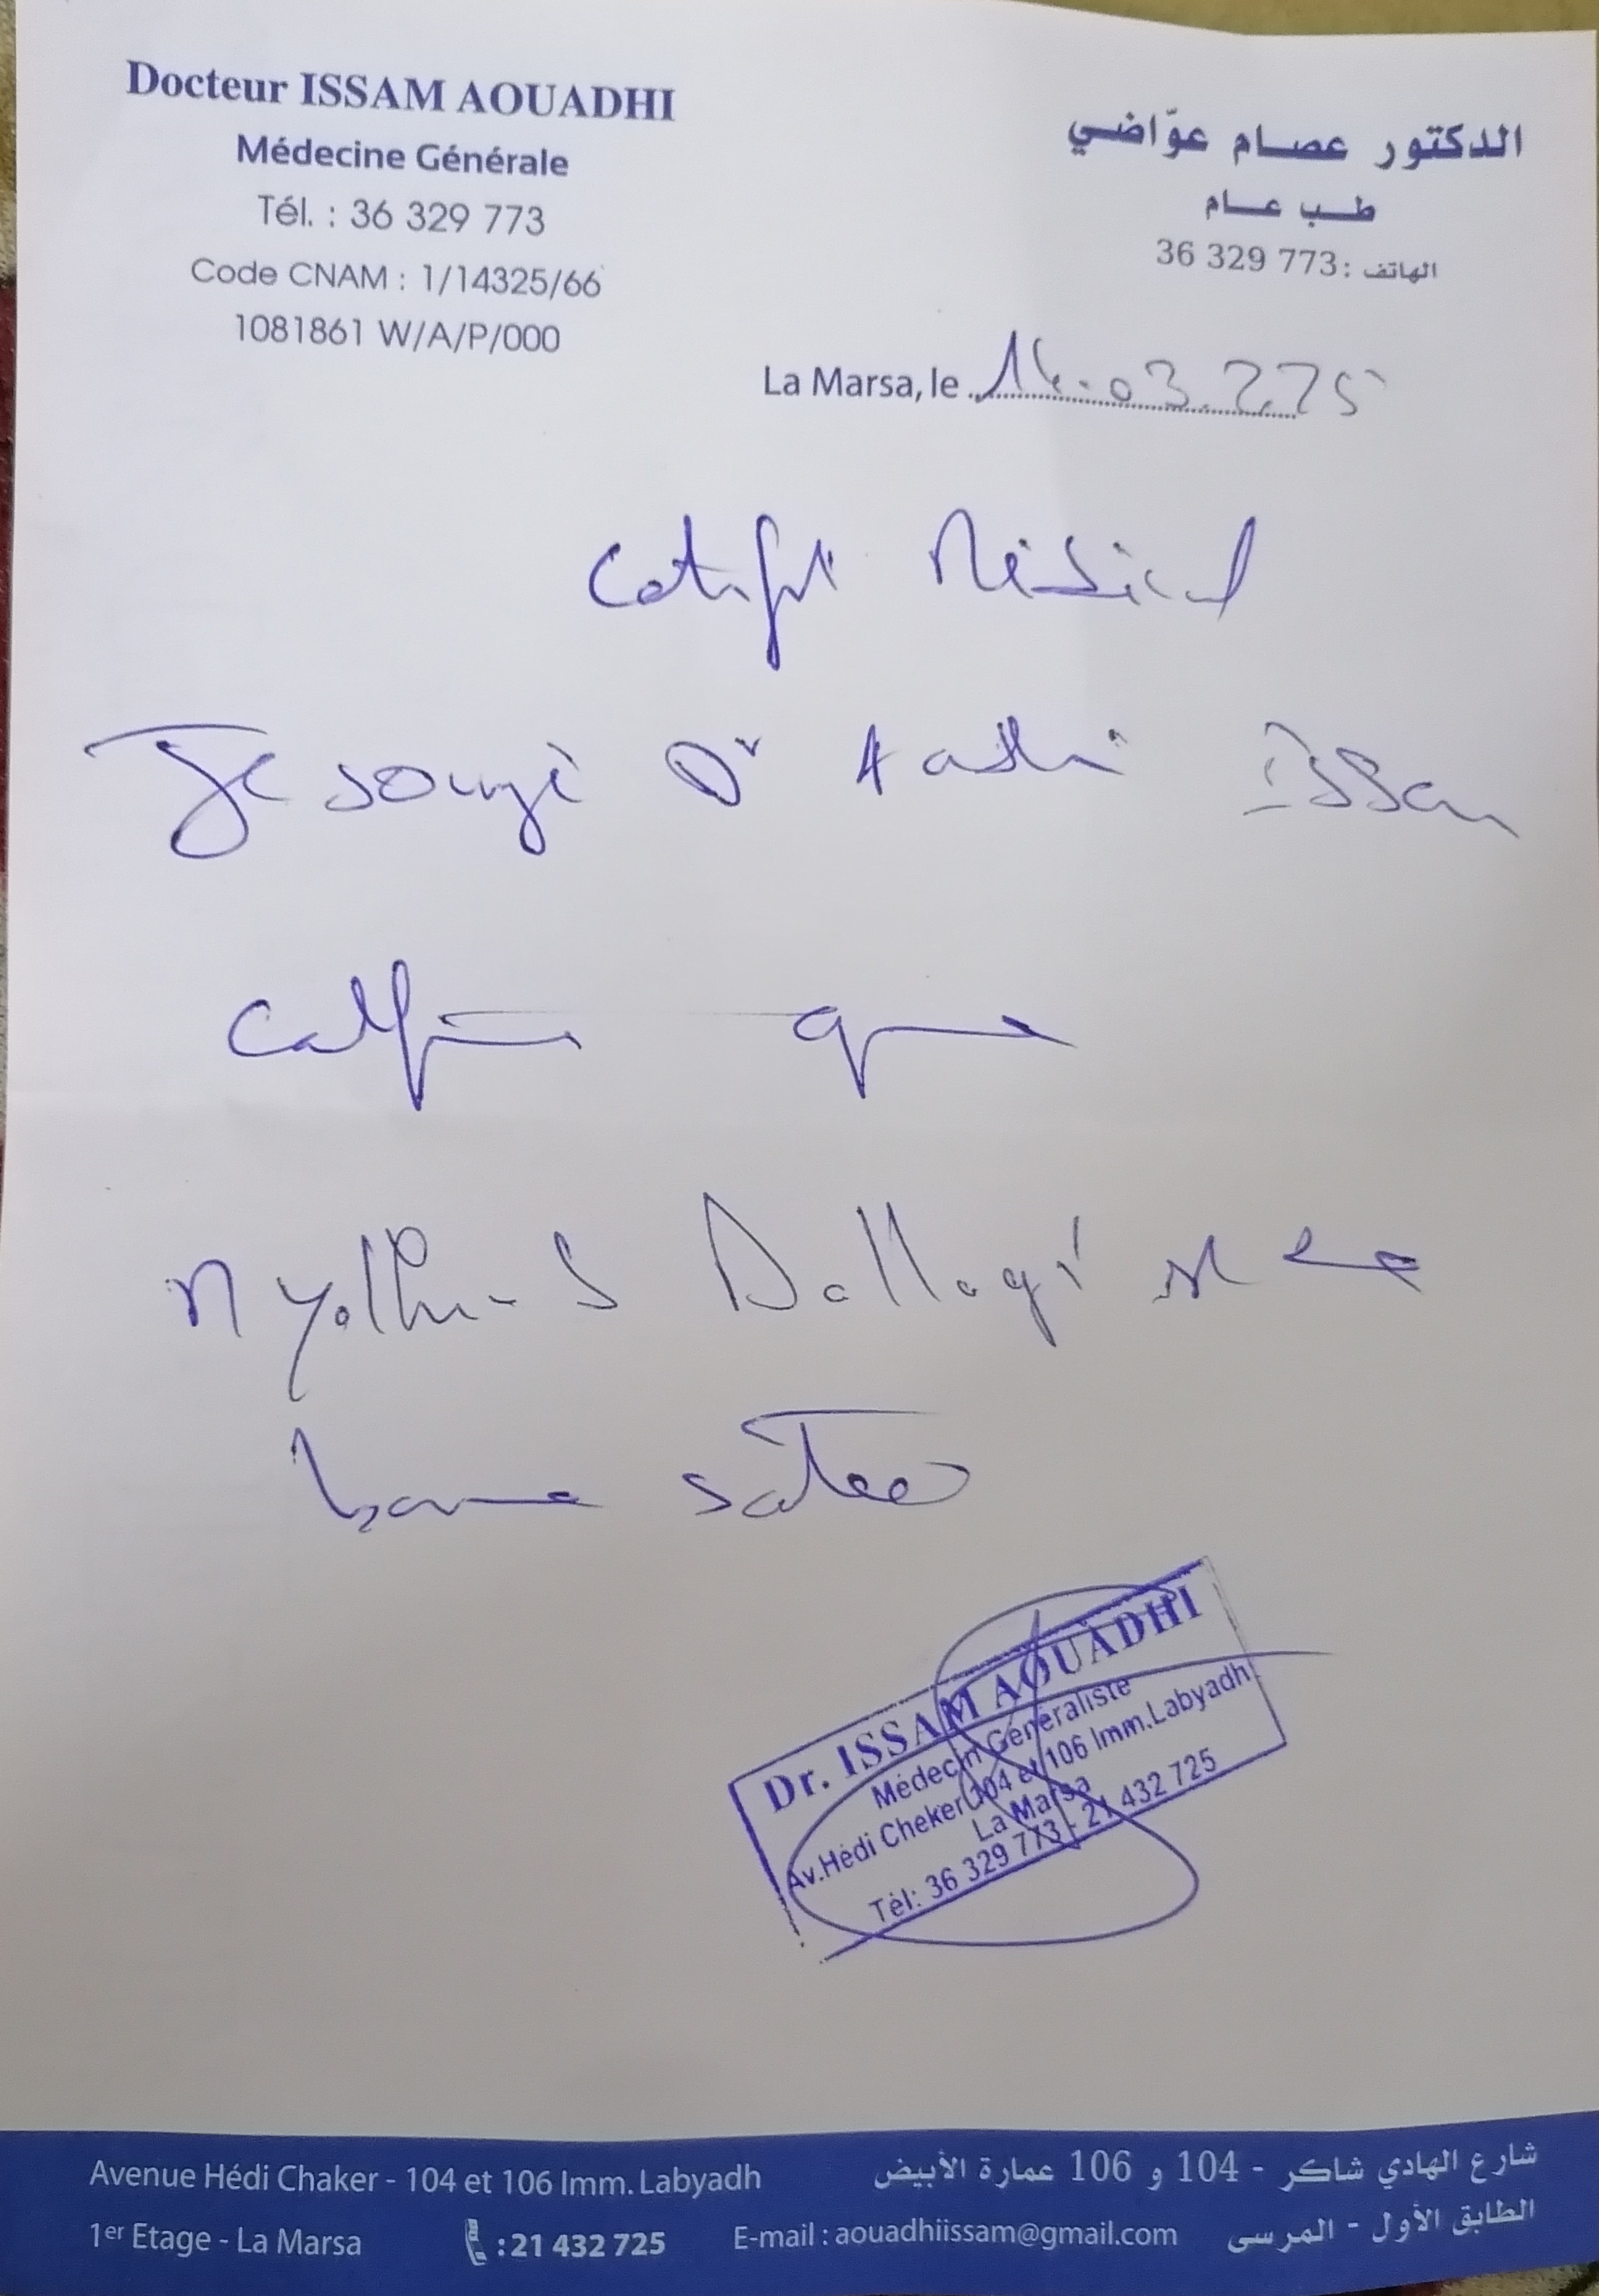 Docteur ISSAM AOUADHI
Médecine Générale
Tél. : 36 329 773
Code CNAM : 1/14325/66
1081861 W/A/P/000
الدكتور عصام عوّاضي
طب عام
الهاتف : 36 329 773
La Marsa, le 14.03.225
Certificat Médical
Je soussigné Dr Aouadhi Issam
Certifie que
Dallagi est en
bonne santé
Dr. ISSAM AOUADHI
Médecin Généraliste
Av.Hédi Cheker 104 et 106 Imm.Labyadh
La Marsa
Tél: 36 329 773 - 21 432 725
Avenue Hédi Chaker - 104 et 106 Imm. Labyadh
1er Etage - La Marsa
: 21 432 725
E-mail : aouadhiissam@gmail.com
شارع الهادي شاكر - 104 و 106 عمارة الأبيض
الطابق الأول - المرسى